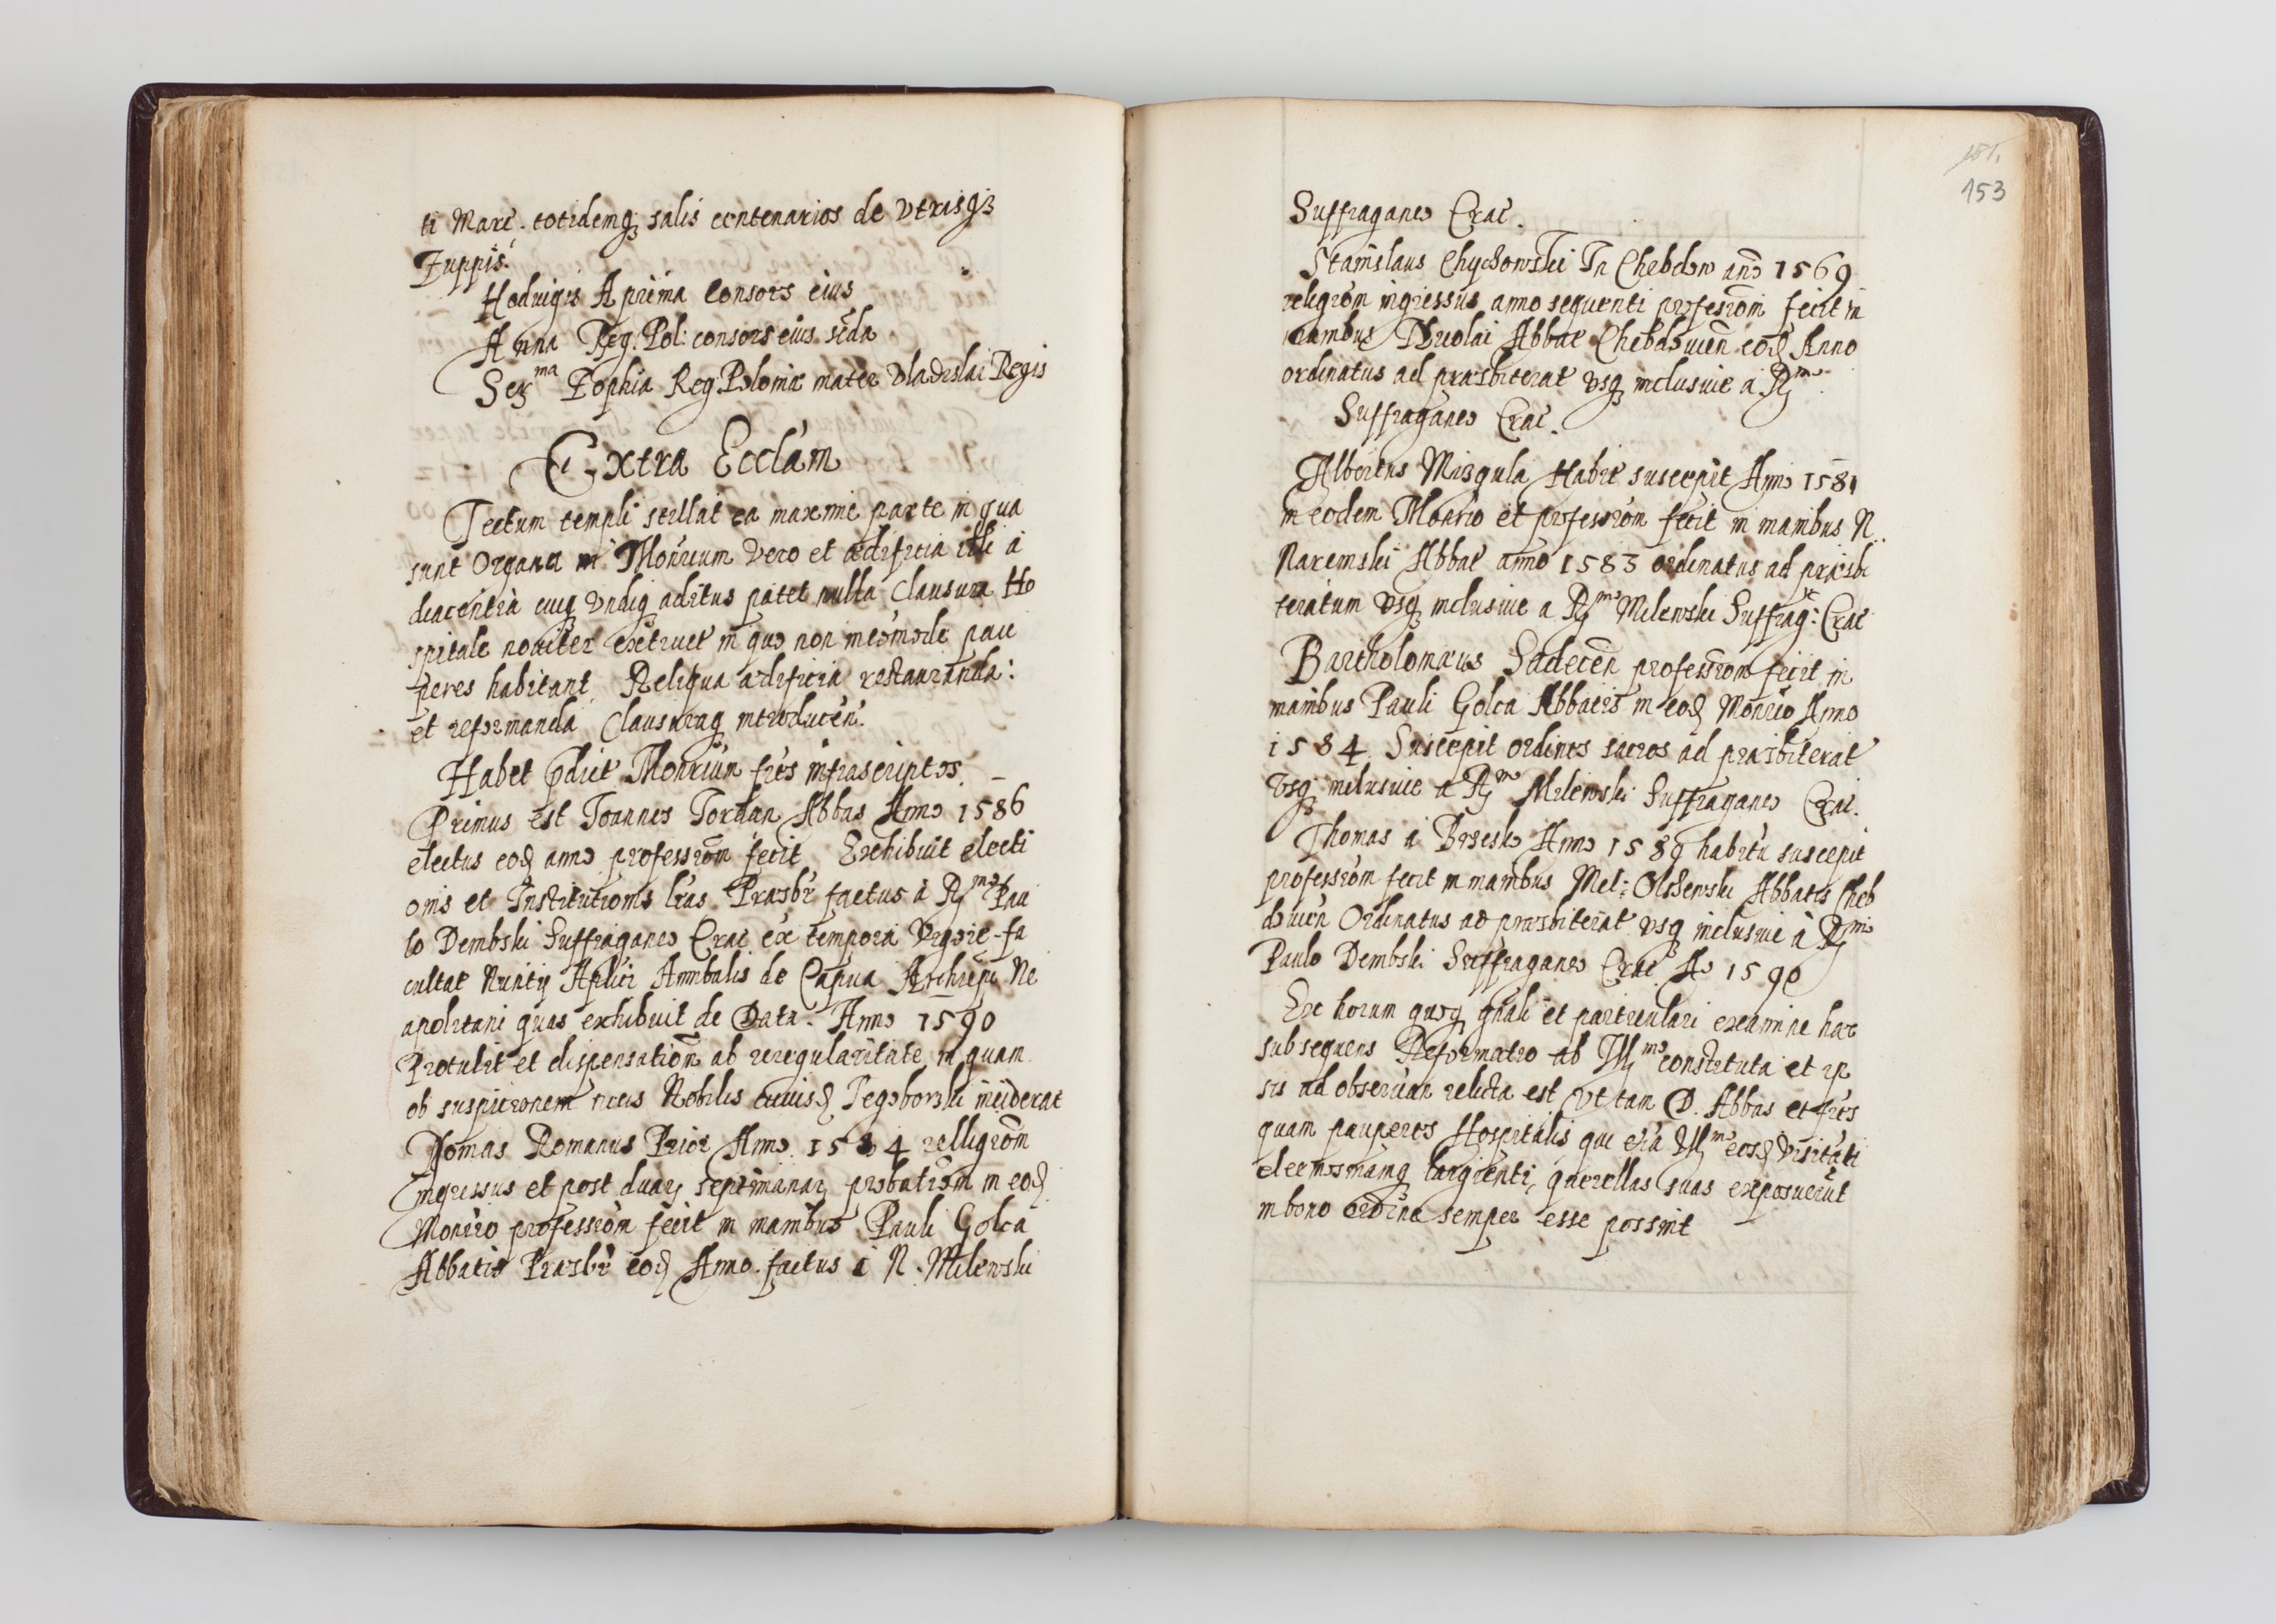 ti Marc. totidemq; salis centenarios de vtrisq3
Zuppis.
Hedvigis A prima Consors eius
Anna Reg. Pol: consors eius scda
Ser^ma Zophia Reg Poloniæ mater Vladislai Regis
Extra Ecclãm
Tectum templi stillat ea maxime parte in qua
sunt Organa Monrium vero et ædificia illi a
diacentia cuiq; vndiq; aditus patet nulla Clausura Ho
spitale noviter exstruet in quo non incomode pau
peres habitant Reliqua ædificia restauranda:
et reformanda Clausuraq; introducen.
Habet pdict Monriun frês infrascriptos.
Primus est Joannes Jordan Abbas Anno 1586
electus eod anno professiom fecit Exhibuit electi
onis et Institutionis lras Præsbr factus à R^mo Pau
lo Dembski Suffraganeo Crac ex tempora vigore fa
cultat Nuntij Aplici Annibalis de Capua Archiepi Ne
apolitani quas exhibuit de Data. Anno 1590
Protulit et dispensationem ab irregularitate in quam
ob suspicionem necis Nobilis cuiusd Tegoborski inciderat
Thomas Romanus Prior Anno 1584 relligiom
ingressus et post duar septimanar probatiom in eod
Monrio professiom fecit in manibus Pauli Golca
Abbatis Præsbr eod Anno factus a N. Milewski
151.
153
Suffraganeo Crac.
Stanislaus Chychowski In Chebdow ano 1569
religiom ingressus anno sequenti professiom fecit in
manibus Nicolai Abbat Chebdouien eod Anno
ordinatus ad præsbiterat vsq; inclusiue a R^mo
Suffraganeo Crac.
Albertus Mizgula Habit suscepit Anno 1581
in eodem Monrio et professiom fecit in manibus N.
Naremski Abbat anno 1583 ordinatus ad præsbi
teratum vsq; inclusiue a R^mo Milewski Suffrag: Crac
Bartholomæus Sadecen professiom fecit in
manibus Pauli Golca Abbatis in eod Monrio Anno
1584 Suscepit ordines sacros ad præsbiterat
vsq; inclusiue a R^mo Milewski Suffraganeo Crac.
Thomas à Brzesko Anno 1589 habitu suscepit
professiom fecit in manibus Mel: Olszewski Abbatis Cheb
douien Ordinatus ad præsbiterat vsq; inclusiue à R^mo
Paulo Dembski Suffraganeo Crac Ao 1590
Ex horum quoq; gnali et particulari examine hæc
subsequens Reformatio ab Ill^mo constituta et ip
sis ad obseruan relicta est vt tam D. Abbas et frês
quam pauperes Hospitalis qui Ill^mo eosd visitati
eleemosinamq; largienti querellas suas exposuerut
in bono ordine semper esse possint